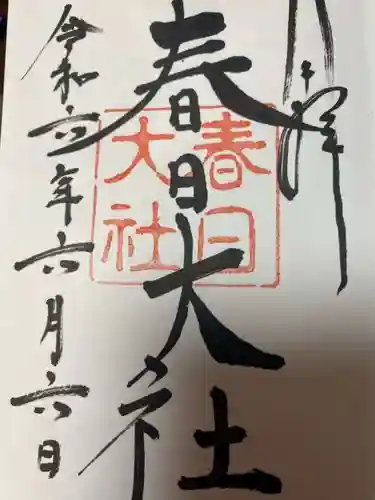 奉拝
春日大社
春日
大社
令和六年六月六日